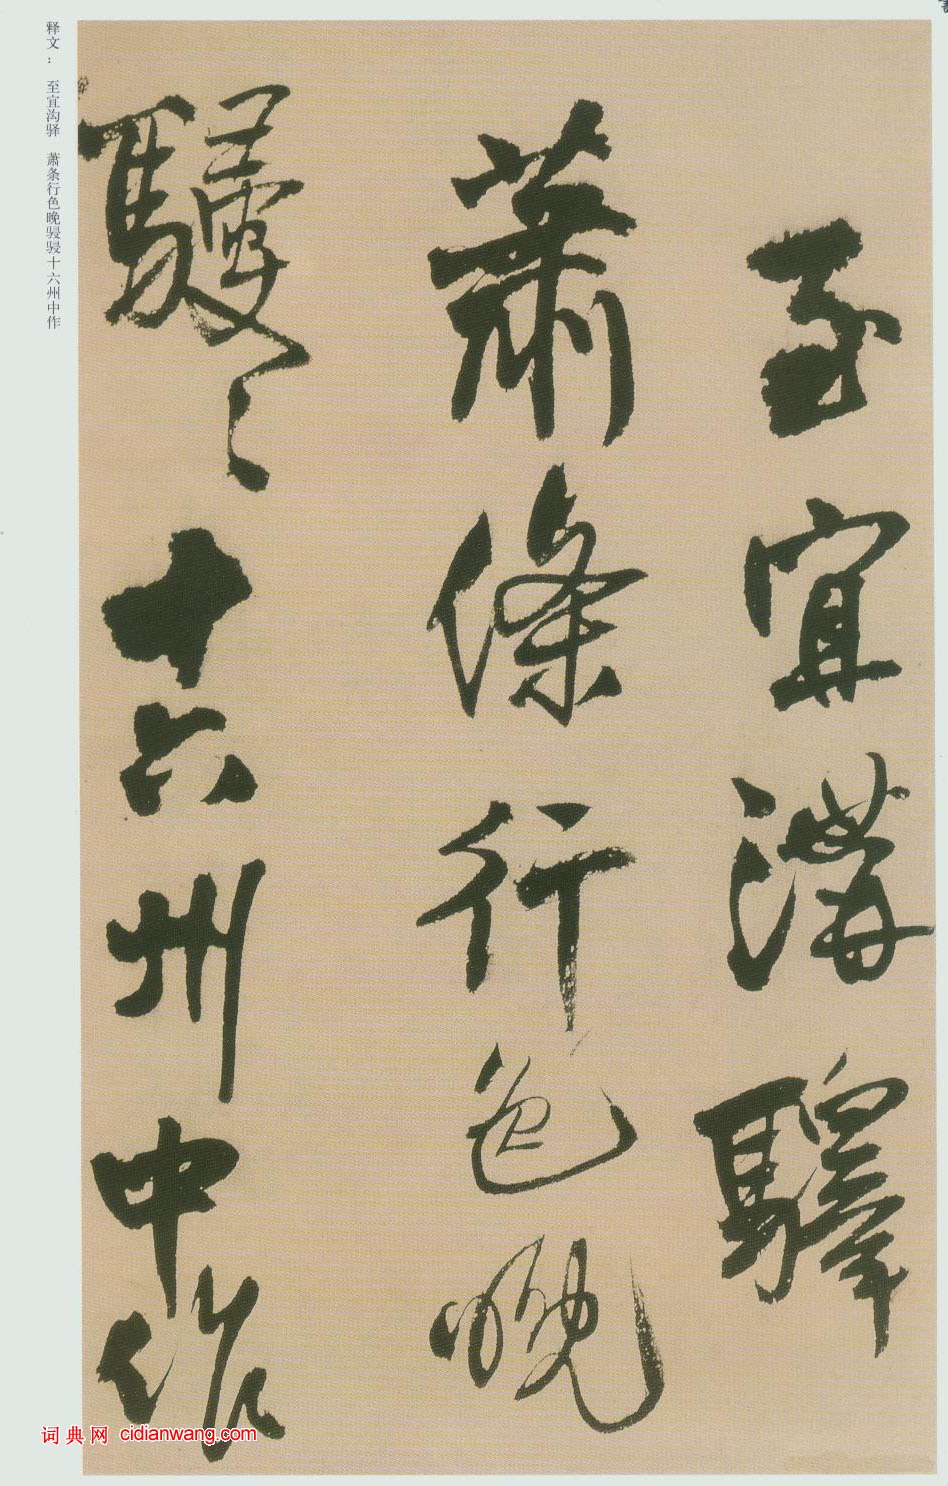 至宜溝驛
蕭條行色晚
駸〻十六州中作
释文: 至宜沟驿 萧条行色晚骎骎十六州中作
词典网 cidianwang.com